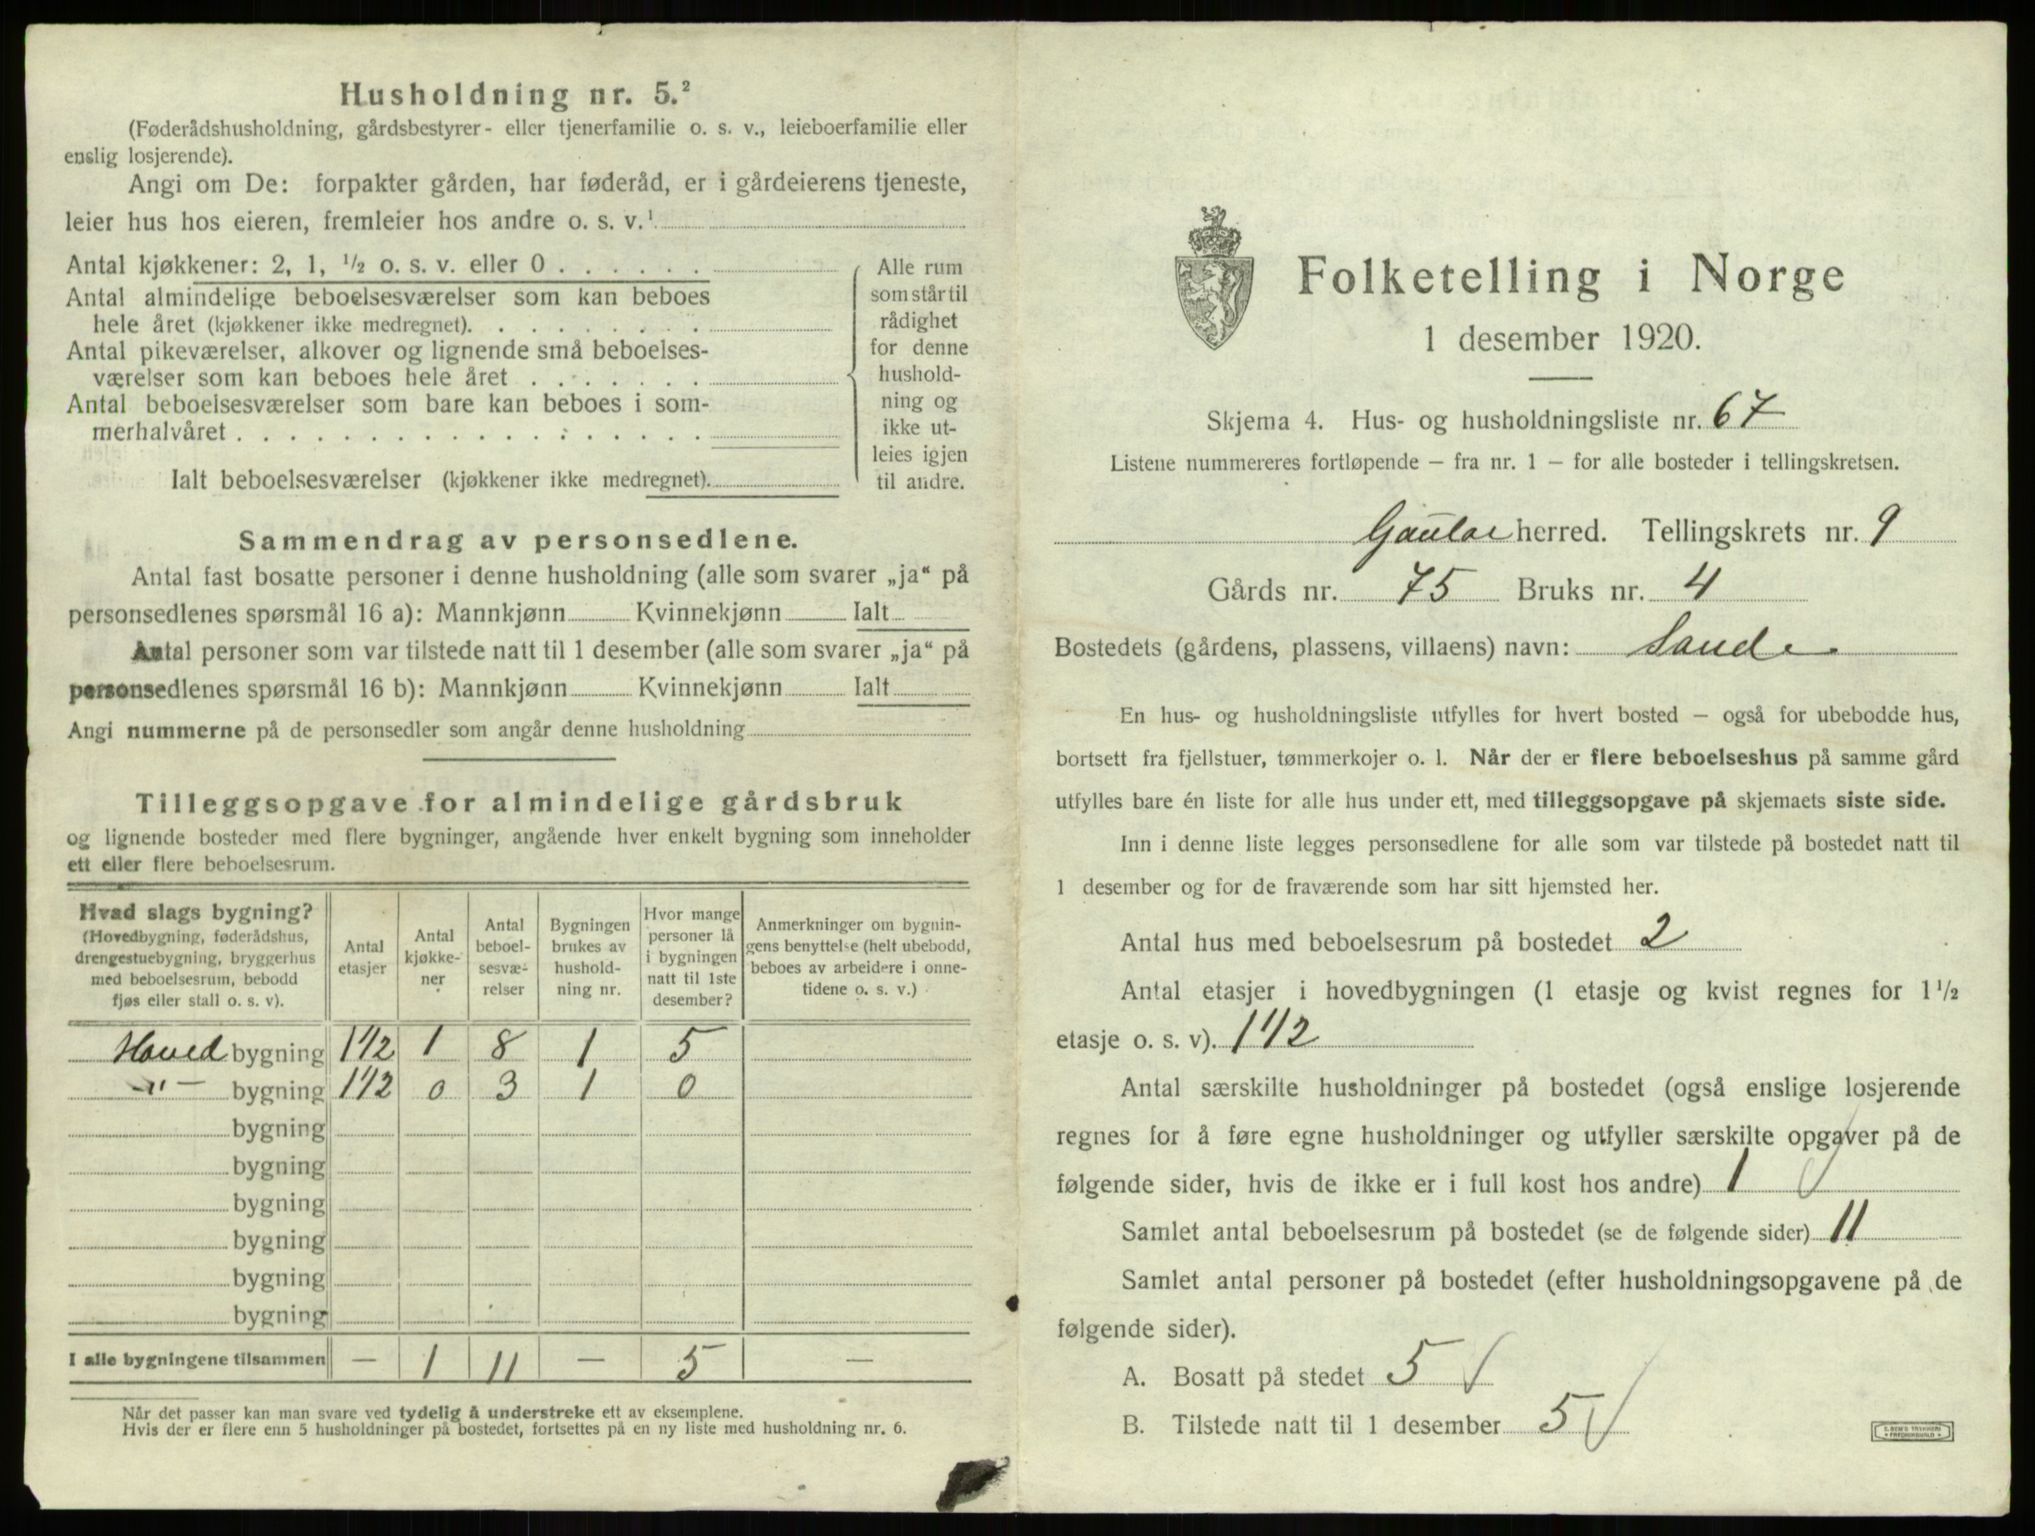 Husholdning nr. 5.²
(Føderådshusholdning, gårdsbestyrer- eller tjenerfamilie o. s. v., leieboerfamilie eller
enslig losjerende).
Angi om De: forpakter gården, har føderåd, er i gårdeierens tjeneste,
leier hus hos eieren, fremleier hos andre o. s. v.¹
Antal kjøkkener: 2, 1, ½ o. s. v. eller 0 . . . . . .
Antal almindelige beboelsesværelser som kan beboes
hele året (kjøkkener ikke medregnet). . . . . . . . .
Antal pikeværelser, alkover og lignende små beboelses-
værelser som kan beboes hele året . . . . . . .
Antal beboelsesværelser som bare kan beboes i som-
merhalvåret . . . . . . . . . . . . . . . . . .
Ialt beboelsesværelser (kjøkkener ikke medregnet).
Alle rum
som står til
rådighet
for denne
hushold-
ning og
ikke ut-
leies igjen
til andre.
Sammendrag av personsedlene.
Antal fast bosatte personer i denne husholdning (alle som svarer „ja“ på
personsedlenes spørsmål 16 a): Mannkjønn Kvinnekjønn Ialt
Antal personer som var tilstede natt til 1 desember (alle som svarer „ja“ på
personsedlenes spørsmål 16 b): Mannkjønn Kvinnekjønn Ialt
Angi nummerne på de personsedler som angår denne husholdning
Tilleggsopgave for almindelige gårdsbruk
og lignende bosteder med flere bygninger, angående hver enkelt bygning som inneholder
ett eller flere beboelsesrum.
Hvad slags bygning?
(Hovedbygning, føderådshus,
drengestuebygning, bryggerhus
med beboelsesrum, bebodd
fjøs eller stall o. s. v).
Antal
etasjer
Antal
kjøkke-
ner
Antal
beboel-
sesvæ-
relser
Bygningen
brukes av
hushold-
ning nr.
Hvor mange
personer lå
i bygningen
natt til 1ste
desember?
Anmerkninger om bygnin-
gens benyttelse (helt ubebodd,
beboes av arbeidere i onne-
tidene o. s. v.)
Hoved bygning 1 1/2 1 8 1 5
-"- bygning 1 1/2 0 3 1 0
bygning
bygning
bygning
bygning
bygning
bygning
I alle bygningene tilsammen — 1 11 — 5 —
Når det passer kan man svare ved tydelig å understreke ett av eksemplene.
Hvis der er flere enn 5 husholdninger på bostedet, fortsettes på en ny liste med husholdning nr. 6.
Folketelling i Norge
1 desember 1920.
Skjema 4. Hus- og husholdningsliste nr. 67
Listene nummereres fortløpende — fra nr. 1 — for alle bosteder i tellingskretsen.
Gaular herred. Tellingskrets nr. 9
Gårds nr. 75 Bruks nr. 4
Bostedets (gårdens, plassens, villaens) navn: Sande
En hus- og husholdningsliste utfylles for hvert bosted — også for ubebodde hus,
bortsett fra fjellstuer, tømmerkojer o. l. Når der er flere beboelseshus på samme gård
utfylles bare én liste for alle hus under ett, med tilleggsopgave på skjemaets siste side.
Inn i denne liste legges personsedlene for alle som var tilstede på bostedet natt til
1 desember og for de fraværende som har sitt hjemsted her.
Antal hus med beboelsesrum på bostedet 2
Antal etasjer i hovedbygningen (1 etasje og kvist regnes for 1½
etasje o. s. v). 1 1/2
Antal særskilte husholdninger på bostedet (også enslige losjerende
regnes for å føre egne husholdninger og utfyller særskilte opgaver på de
følgende sider, hvis de ikke er i full kost hos andre) 1
Samlet antal beboelsesrum på bostedet (se de følgende sider) 11
Samlet antal personer på bostedet (efter husholdningsopgavene på de
følgende sider).
A. Bosatt på stedet 5
B. Tilstede natt til 1 desember 5